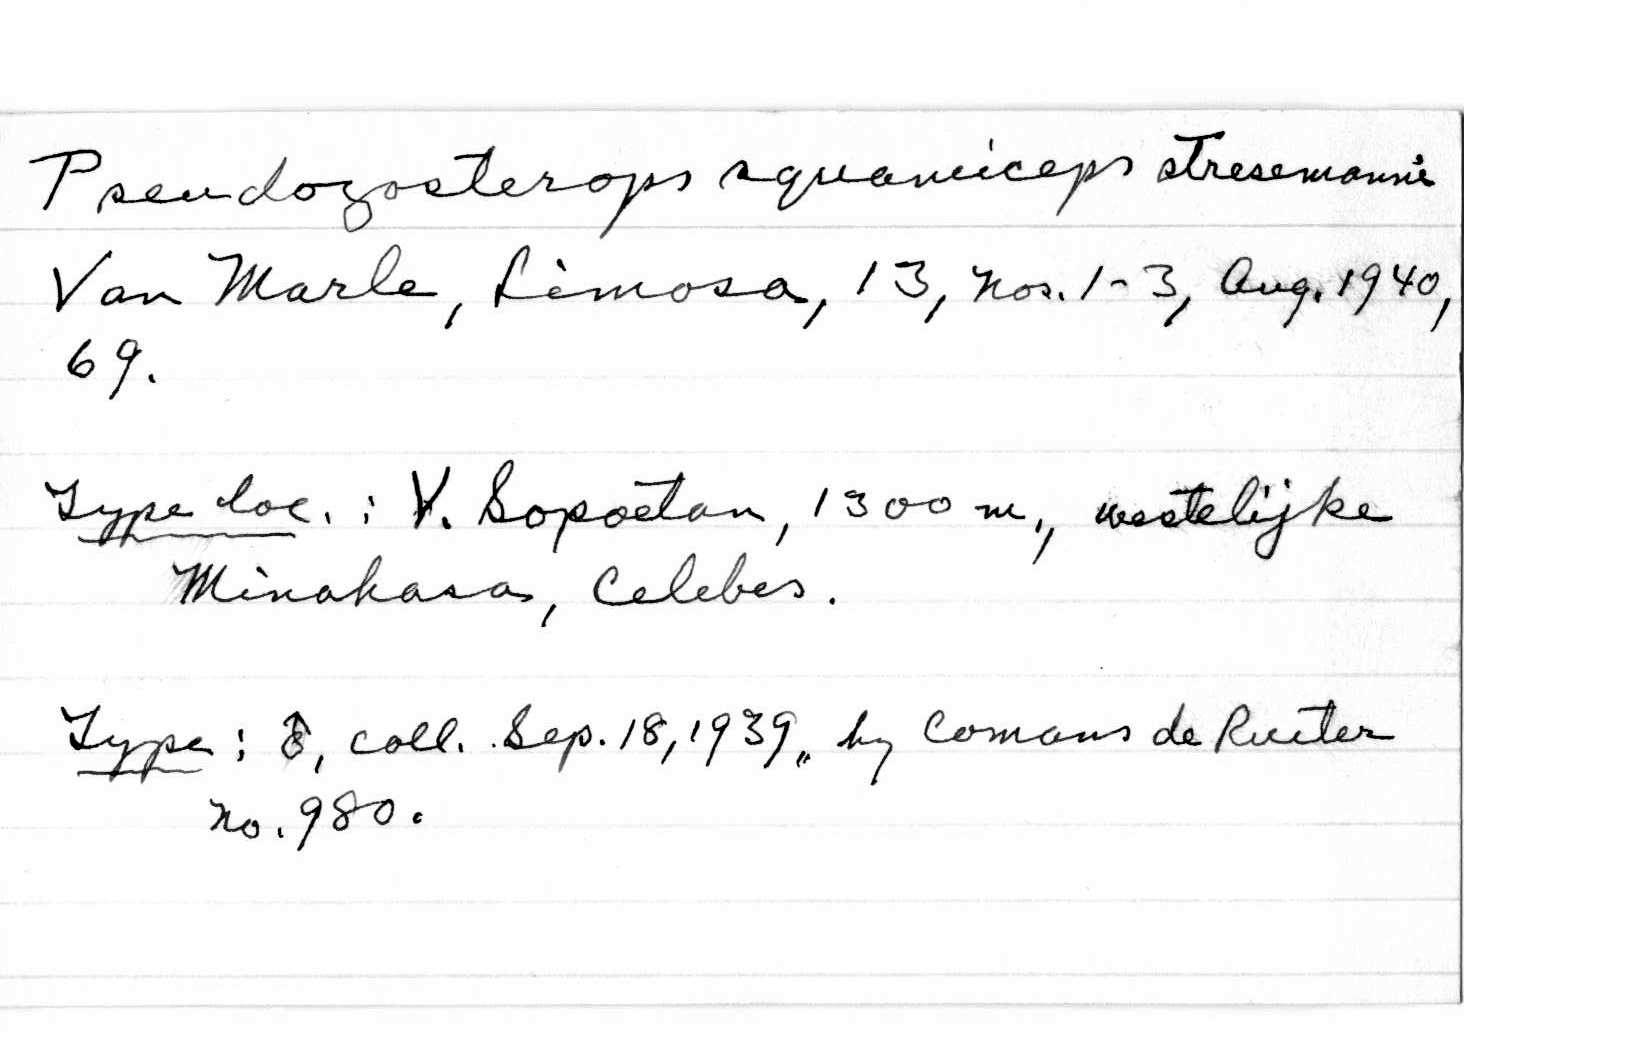 Pseudozosterops squamiceps stresemanni
Van Marle, Limosa, 13, Nos. 1-3, Aug. 1940,
69.
Type loc. : V. Sopoetan, 1300 m., westelijke
Minahasa, Celebes.
Type : ♂, coll. Sep. 18, 1939,, by Comans de Ruiter
No. 980.